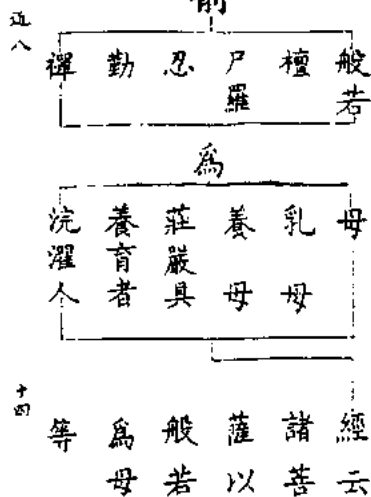 前
般若
檀
尸羅
忍
勤
禪
為
母
乳母
養母
莊嚴具
養育者
浣濯人
經云
諸菩
薩以
般若
為母
等
十四